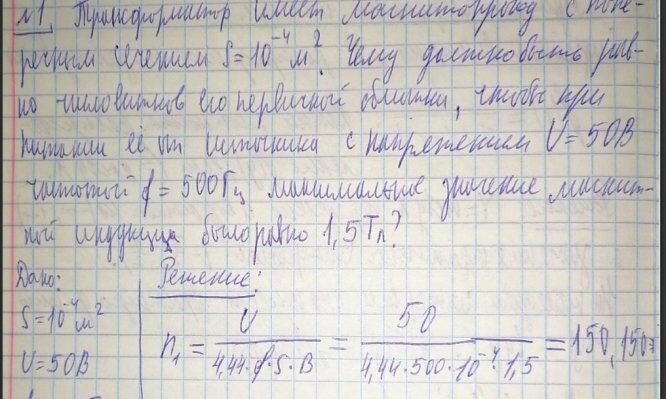 №1. Трансформатор имеет магнитопровод с попе-
речным сечением S = 10⁻⁴ м². Чему должно быть рав-
но число витков его первичной обмотки, чтобы при
питании её от источника с напряжением U = 50В
частотой f = 500Гц максимальное значение магнит-
ной индукции было равно 1,5Тл?
Дано:
Решение:
S = 10⁻⁴ м²
U = 50В
n₁ = U / 4,44·f·S·B = 50 / 4,44·500·10⁻⁴·1,5 = 150,150